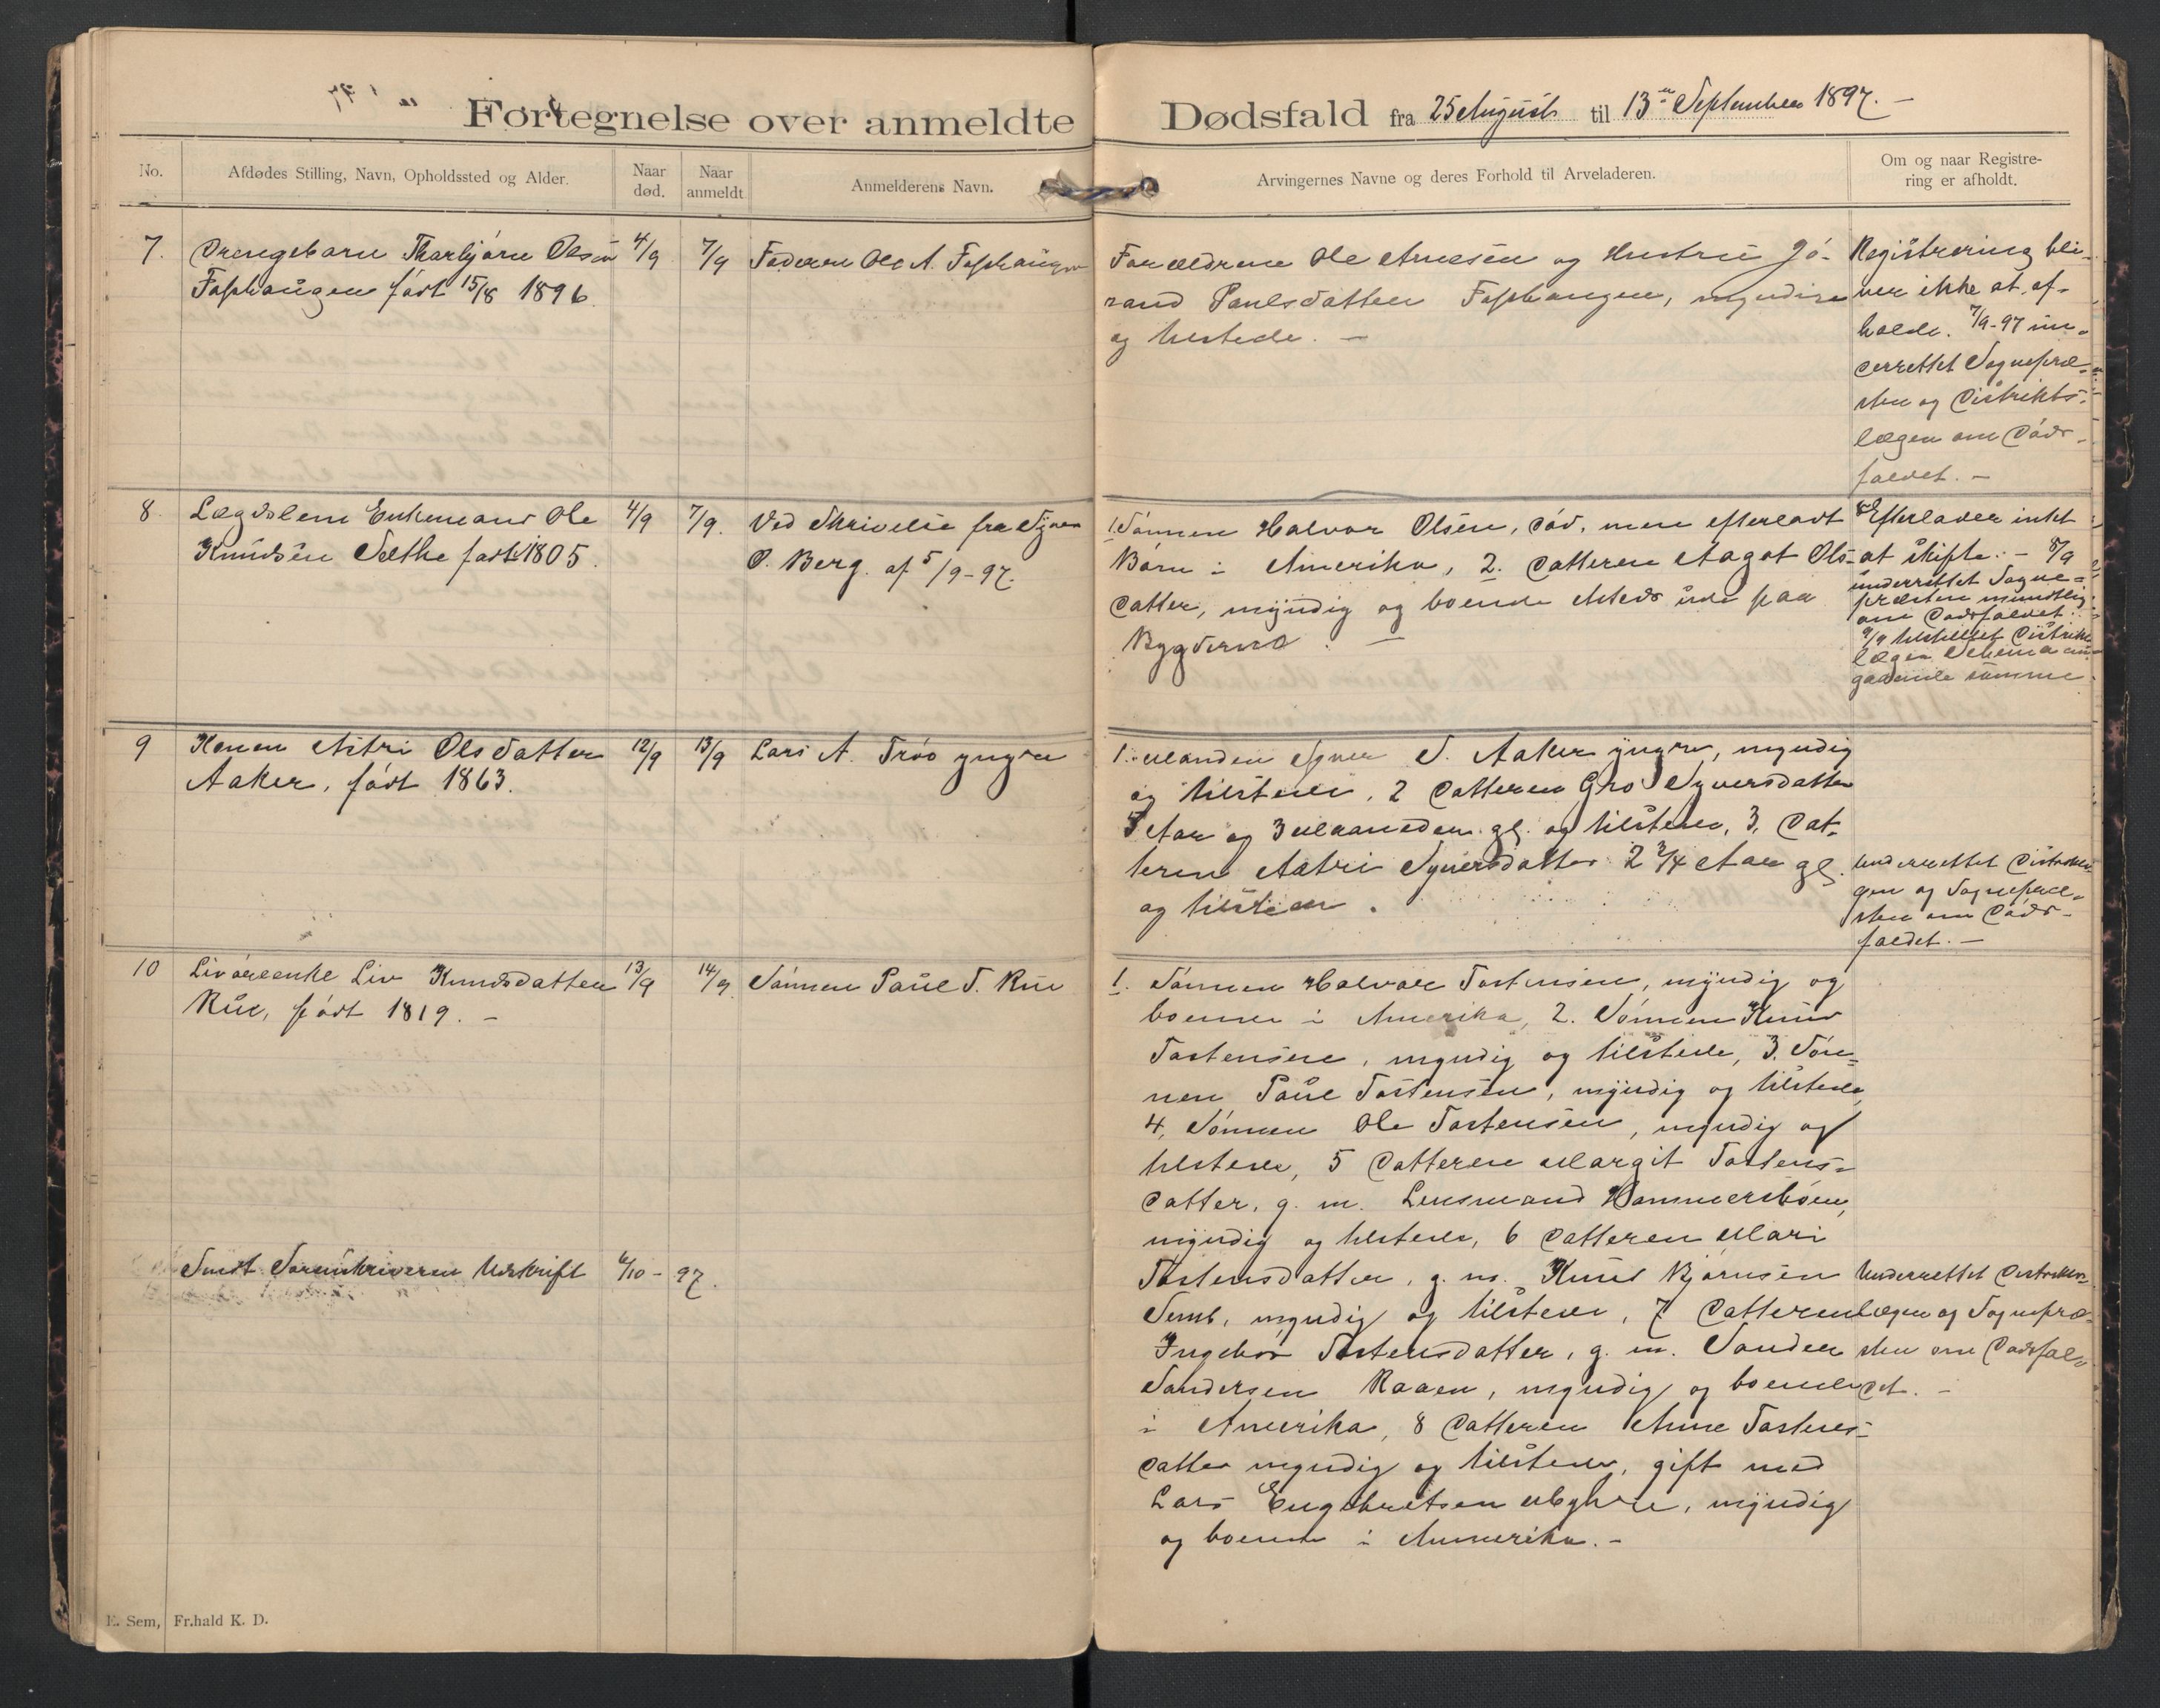 Fortegnelse over anmeldte Dødsfald fra 25 August til 13de September 1897. –
No.
Afdødes Stilling, Navn, Opholdssted og Alder.
Naar død.
Naar anmeldt
Anmelderens Navn.
Arvingernes Navne og deres Forhold til Arveladeren.
Om og naar Registre-
ring er afholdt.
7. Drengebarn Thorbjørn Olsen 4/9 7/9 Faderen Ole A.
født 15/8 1896.
Forældrene Ole Arnesen og Hustru Jó-
rand Paulsdatter myndige
og tilstede. –
Registrering bli-
ver ikke at af-
holde. 7/9-97 un-
derrettet Sognepræ-
sten og Distrikts-
lægen om Døds-
faldet. –
8. Lægdslem Enkemand Ole 4/9 7/9. Ved Skrivelse fra Syver
Knudsen Sæthe født 1805. O. Berg. af 5/9-97.
1. Sønnen Halvor Olsen, død, men efterladt
Børn i Amerika, 2. Datteren Aagot Ols-
datter, myndig og boende etsteds ude paa
Bygderne. –
Efterlader intet
at skifte. – 8/9
underrettet Sogne-
præsten mundtlig
om Dødsfaldet.
9/9 tilstillet Distrikts
lægen Schema an-
gaaende samme
9 Konen Astri Olsdatter 12/9 13/9 Lars A. Tróo yngre
Aaker, født 1863.
1. Manden Syver S. Aaker yngre, myndig
og tilstede, 2 Datteren Gro Syversdatter
5 Aar og 3 Maaneder gl. og tilstede, 3. Dat-
teren Astri Syversdatter 2 3/4 Aar gl.
og tilstede.
Underrettet Distriktslæ
gen og Sognepræ-
sten om Døds-
faldet. –
10 Livóreenke Liv Knudsdatter 13/9 14/9. Sønnen Paul T. Rue
Rue, født 1819. –
1. Sønnen Halvor Tostensen, myndig og
boende i Amerika, 2. Sønnen Knud
Tostensen, myndig og tilstede, 3. Søn-
nen Paul Tostensen, myndig og tilstede,
4, Sønnen Ole Tostensen, myndig og
tilstede, 5 Datteren Margit Tostens-
datter, g. m. Lensmand Hammersbøen,
myndig og tilstede, 6 Datteren Mari
Tostensdatter, g. m. Knud Bjørnsen
Semb, myndig og tilstede, 7 Datteren
Ingebor Tostensdatter, g. m. Sander
Sandersen Raaen, myndig og boende
i Amerika, 8 Datteren Anne Tostens-
datter myndig og tilstede, gift med
Lars Engebretsen myndig
og boende i Amerika. –
Underrettet Distrikts-
lægen og Sognepræ-
sten om Dødsfal-
det. –
Sendt Sorenskriveren Udskrift 6/10 - 97.
E. Sem, Fr.hald K. D.